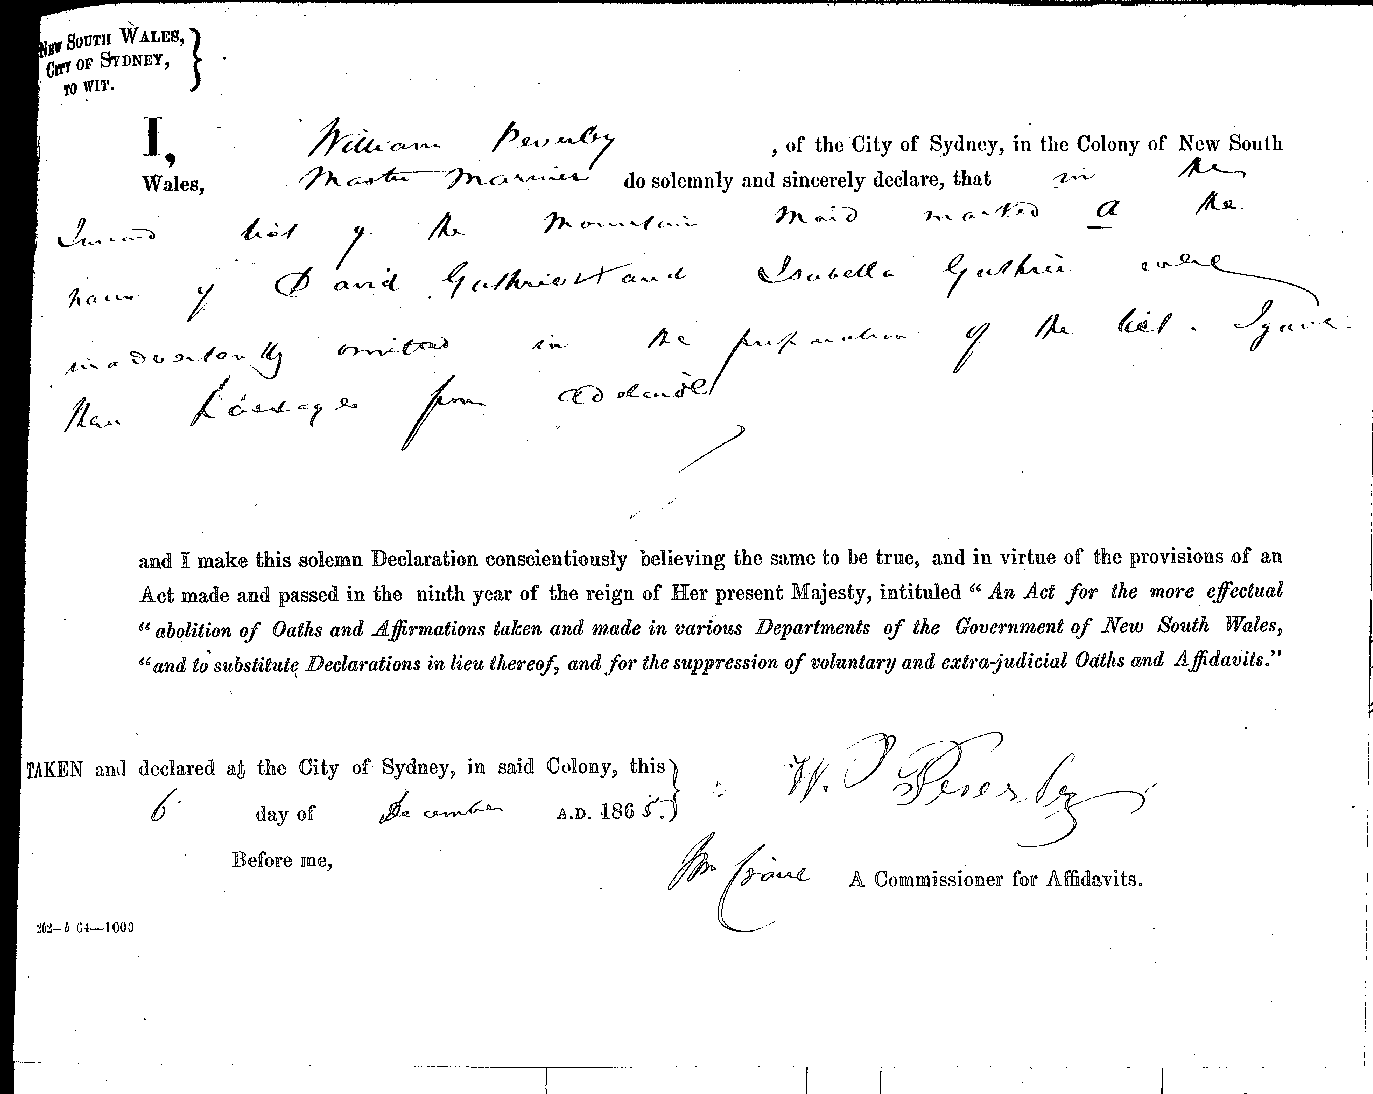 NEW SOUTH WALES,
CITY OF SYDNEY,
TO WIT.
I, William Peverley, of the City of Sydney, in the Colony of New South
Wales, Master Mariner do solemnly and sincerely declare, that in the
Inward list of the Mountain Maid marked A the
name of David Guthrie and Isabella Guthrie were
inadvertantly omitted in the preparation of the list. I gave
them Passages from Adelaide
and I make this solemn Declaration conscientiously believing the same to be true, and in virtue of the provisions of an
Act made and passed in the ninth year of the reign of Her present Majesty, intituled “ An Act for the more effectual
“ abolition of Oaths and Affirmations taken and made in various Departments of the Government of New South Wales,
“ and to substitute Declarations in lieu thereof, and for the suppression of voluntary and extra-judicial Oaths and Affidavits.”
TAKEN and declared at the City of Sydney, in said Colony, this
6 day of December A.D. 1865.
W. P Peverley
Before me,
Wm Crane A Commissioner for Affidavits.